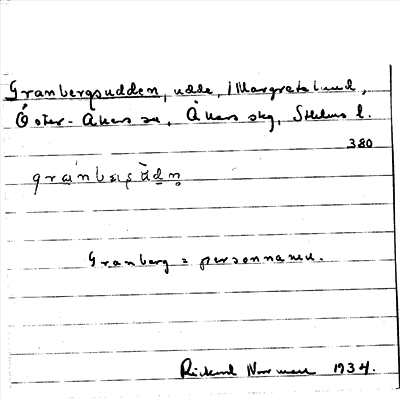 Granbergsudden, udde, Margretelund,
Öster-Åkers sn, Åkers skg, Sthlms l.
380
Granberg = personnamn.
Rickard Norman 1934.